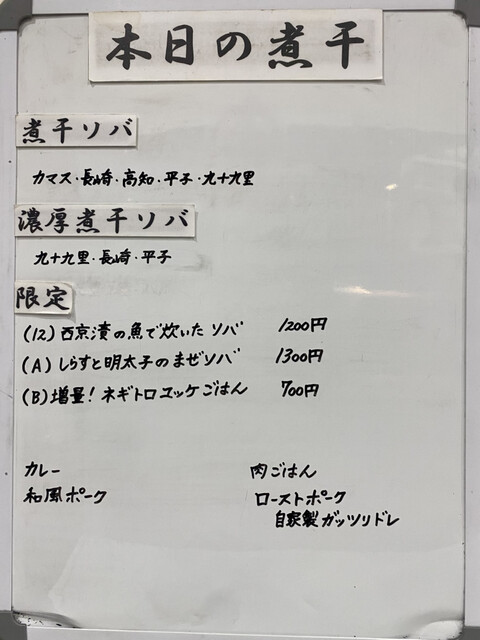 本日の煮干
煮干ソバ
カマス・長崎・高知・平子・九十九里
濃厚煮干ソバ
九十九里・長崎・平子
限定
(12) 西京漬の魚で炊いたソバ 1200円
(A) しらすと明太子のまぜソバ 1300円
(B) 増量! ネギトロユッケごはん 700円
カレー 肉ごはん
和風ポーク ローストポーク
自家製ガッツリドレ